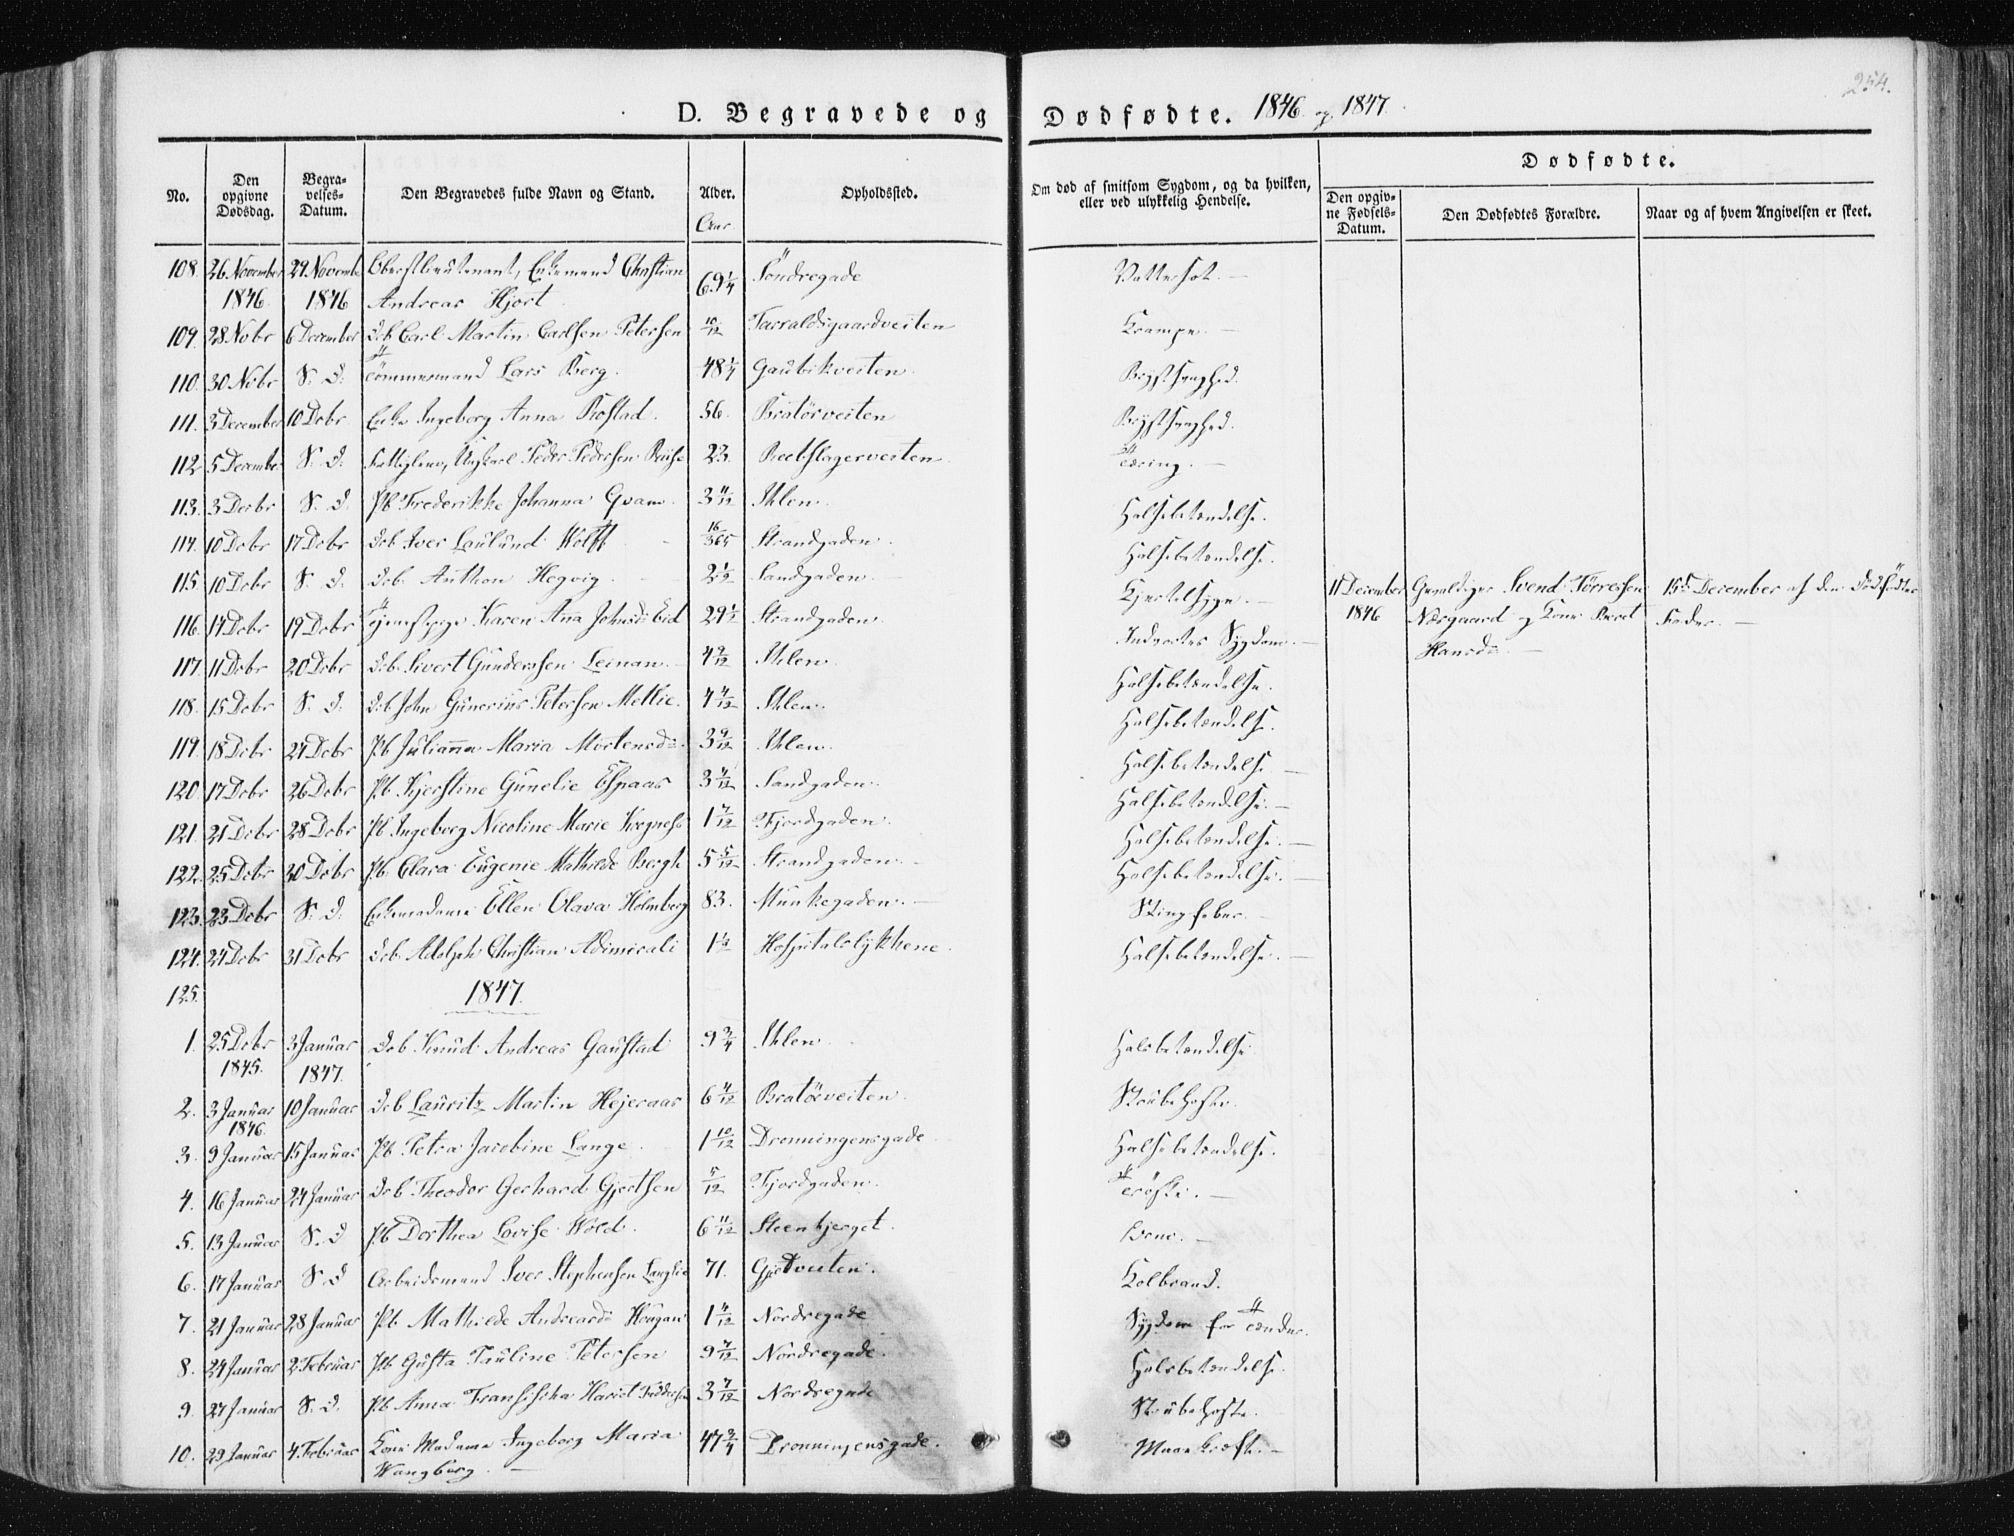 254.
D. Begravede og Dødfødte. 1846 og 1847.
No. | Den opgivne Dødsdag. | Begravelses-Datum. | Den Begravedes fulde Navn og Stand. | Alder. Aar | Opholdssted. | Om død af smitsom Sygdom, og da hvilken, eller ved ulykkelig Hendelse. | Dødfødte. | Den opgivne Fødsels-Datum. | Den Dødfødtes Forældre. | Naar og af hvem Angivelsen er skeet.
108. 26. November 1846 29. Novemb 1846 Oberstlieutenant, Enkemand Christian Andreas Hjort 69 1/4 Søndregade Vattersot.
109. 28 Nobr 6 December Db Carl Martin Carlsen Petersen 10/12 Tarraldsgaardveiten Krampe.
110. 30 Nobr S. D. Tømmermand Lars Berg. 48 1/4 Gaubikveiten Brystsvaghed.
111. 3 December 10 Debr Enke Ingeborg Anna Rostad. 56. Bratörveiten Brystsvaghed.
112 5 December S. D. Fattiglem, Ungkarl Peder Pedersen 23. Reebslagerveiten Tæring.
113. 3 Decbr S. D. Pb Frederikke Johanna Qvam 3 11/12 Ihlen Halsebetændelse.
114. 10 Debr 17 Debr Db Iver Wolff 16/365 Strandgaden. Halsebetændelse.
115. 10 Debr S. D. Db. Anthon Hegvig. 2 1/2 Sandgaden. Kjertelsyge.
11 December 1846 Svend Tørressen Nærgaard og Kone Beret Hansd. 15de December af den Dødfødtes Fader.
116. 14 Debr 19 Debr Tjenestpige Karen Ana Johnsd. Eid 29 1/2 Strandgaden. Indvortes Sygdom.
117. 11 Debr 20 Debr Db. Sivert Gundersen Leinan. 4 9/12 Ihlen. Halsebetændelse.
118. 15 Debr S. D. Db. John Gunerius Petersen Mellie. 4 4/12 Ihlen. Halsebetændelse.
119. 18 Debr 24 Debr Pb Julianna Maria Mortensd. 3 9/12 Ihlen. Halsebetændelse.
120 17 Debr 26 Debr Pb Kjerstine Gunelie Espaas 3 4/12 Sandgaden. Halsebetændelse.
121. 21 Debr 28 Debr Pb Ingeborg Nicoline Marie 1 7/12 Fjordgaden. Halsebetændelse.
122. 25 Debr 30 Debr Pb. Clara Eugenie Mathilde Bergh 5 5/12 Strandgaden. Halsebetændelse.
123. 23 Debr S. D. Enkemadame Ellen Olava Holmberg 83. Munkegaden. Stingfeber.
124. 24 Debr 31 Debr Db. Adolph Christian Adimirali 1 1/2 Hospitalslykkene. Halsebetændelse.
125. 1847.
1. 25 Debr 1845. 3 Januar 1847. Db Knud Andreas Gaustad 9 3/4 Ihlen Halsbetændelse
2. 3 Januar 1846. 10 Januar Db Lauritz Martin Hejeraas 6 4/12 Bratörveiten. Strubehoste.
3. 9 Januar 15 Januar Pb. Petra Jacobine Lange. 1 10/12 Dronningensgade Halsebetændelse.
4. 16 Januar 24 Januar Db Theodor Gerhard Gjertsen 5/12 Fjordgaden. Trøske.
5. 13 Januar S. D Pb Dorthea Lovise Wold. 6 11/12 Steenbjerget.
6. 17 Januar S. D Arbeidsmand Iver Stephensen Langlie 71. Gjetveiten. Kolbrand.
7. 21 Januar 28 Januar Pb. Mathilde Andreasd. 1 4/12 Nordregade Sygdom for Tænder.
8. 24 Januar 2 Februar Pb Gusta Pauline Petersen 9 7/12 Nordregade. Halsbetændelse.
9. 27 Januar S. D. Pb Anna Fransiscka Hariet 3 7/12 Nordregade Strubehoste.
10. 29 Januar 4. Februar Kone Madame Ingeborg Maria Wangberg. 47 3/4 Dronningensgade.